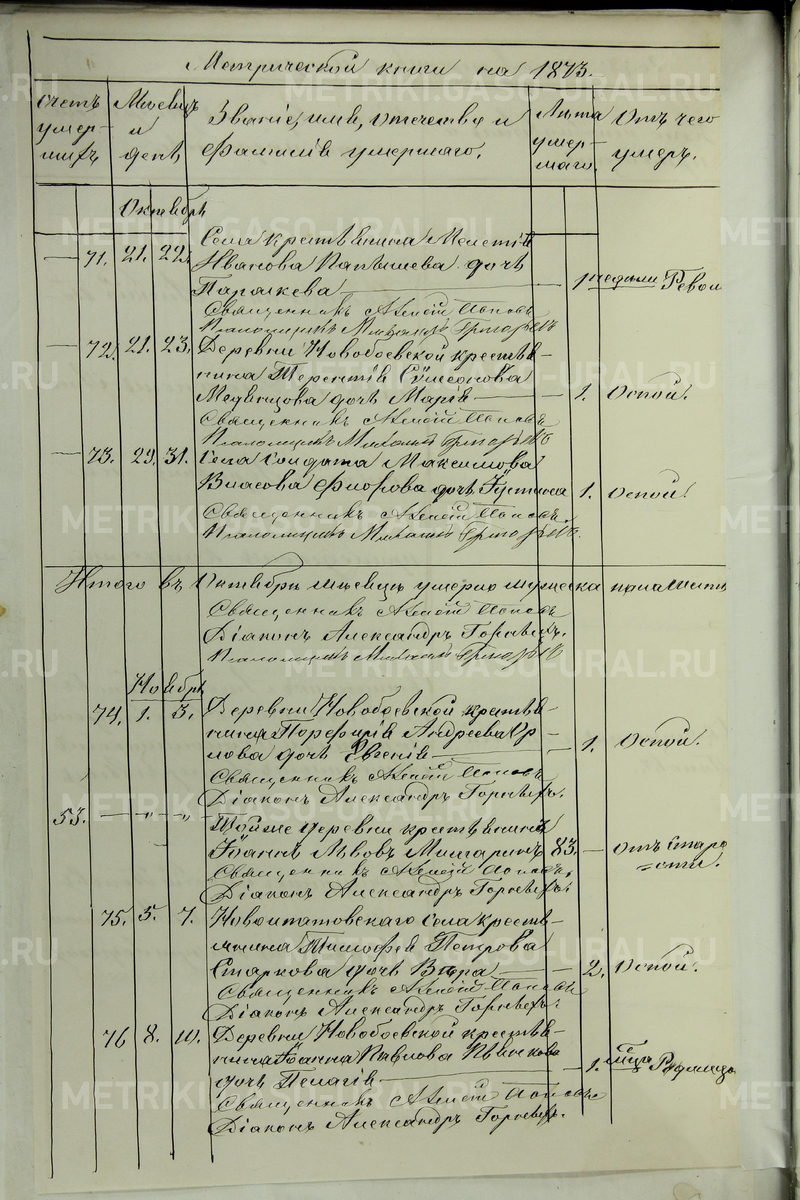 Метрической книги на 1873.
Счетъ умер-шихъ
Мѣсяцъ и день
Званіе, имя, отечество и фамилія умершаго.
Лѣта умер-шаго.
Отъ чего умеръ.
Октябрь
71. 21. 22. Села крестьянина Мелетія
Иванова Папышева дочь
Параскева — 1 недели Ревом
Священникъ Алексій Поповъ
Псаломщикъ Михаилъ Григорьевъ
72. 21. 23. Деревни Новобоевской крестья-
нина Терентія Сѵмеонова
Медвѣщова дочь Марія — 1. Оспой.
Священникъ Алексій Поповъ
Псаломщикъ Михаилъ Григорьевъ
73. 29. 31. Села солдата Максима
Власова Флорова дочь Іустина 1. Оспой.
Священникъ Алексій Поповъ
Псаломщикъ Михаилъ Григорьевъ.
Итого въ Октябрѣ мѣсяцѣ умерло мужеска пола
Священникъ Алексій Поповъ
Діаконъ Александръ
Псаломщикъ Михаилъ Григорьевъ
Ноябрь
74. 1. 3. Деревни Новобоевской крестья-
нина Порфирія Андреева Ор-
лова дочь Евгенія — 1. Оспой.
Священникъ Алексій Поповъ
Діаконъ Александръ
53. — „ — „ — Тойже деревни крестьянинъ
Іоаннъ Львовъ 83. — Отъ старо
сти.
Священникъ Алексій Поповъ.
Діаконъ Александръ
75. 5. 7. Новоипатовскаго села крестъ-
янина Тимофея Петрова
Старкова дочь Вѣра — 2. Оспой.
Священникъ Алексій Поповъ
Діаконъ Александръ
76 8. 10. Деревни Новобоевской крестья-
нина Іоанна Павлова
дочь Пелагія — 1. мѣца Родимцо
Священникъ Алексій Поповъ
Діаконъ Александръ
METRIKI.GASO-URAL.RU